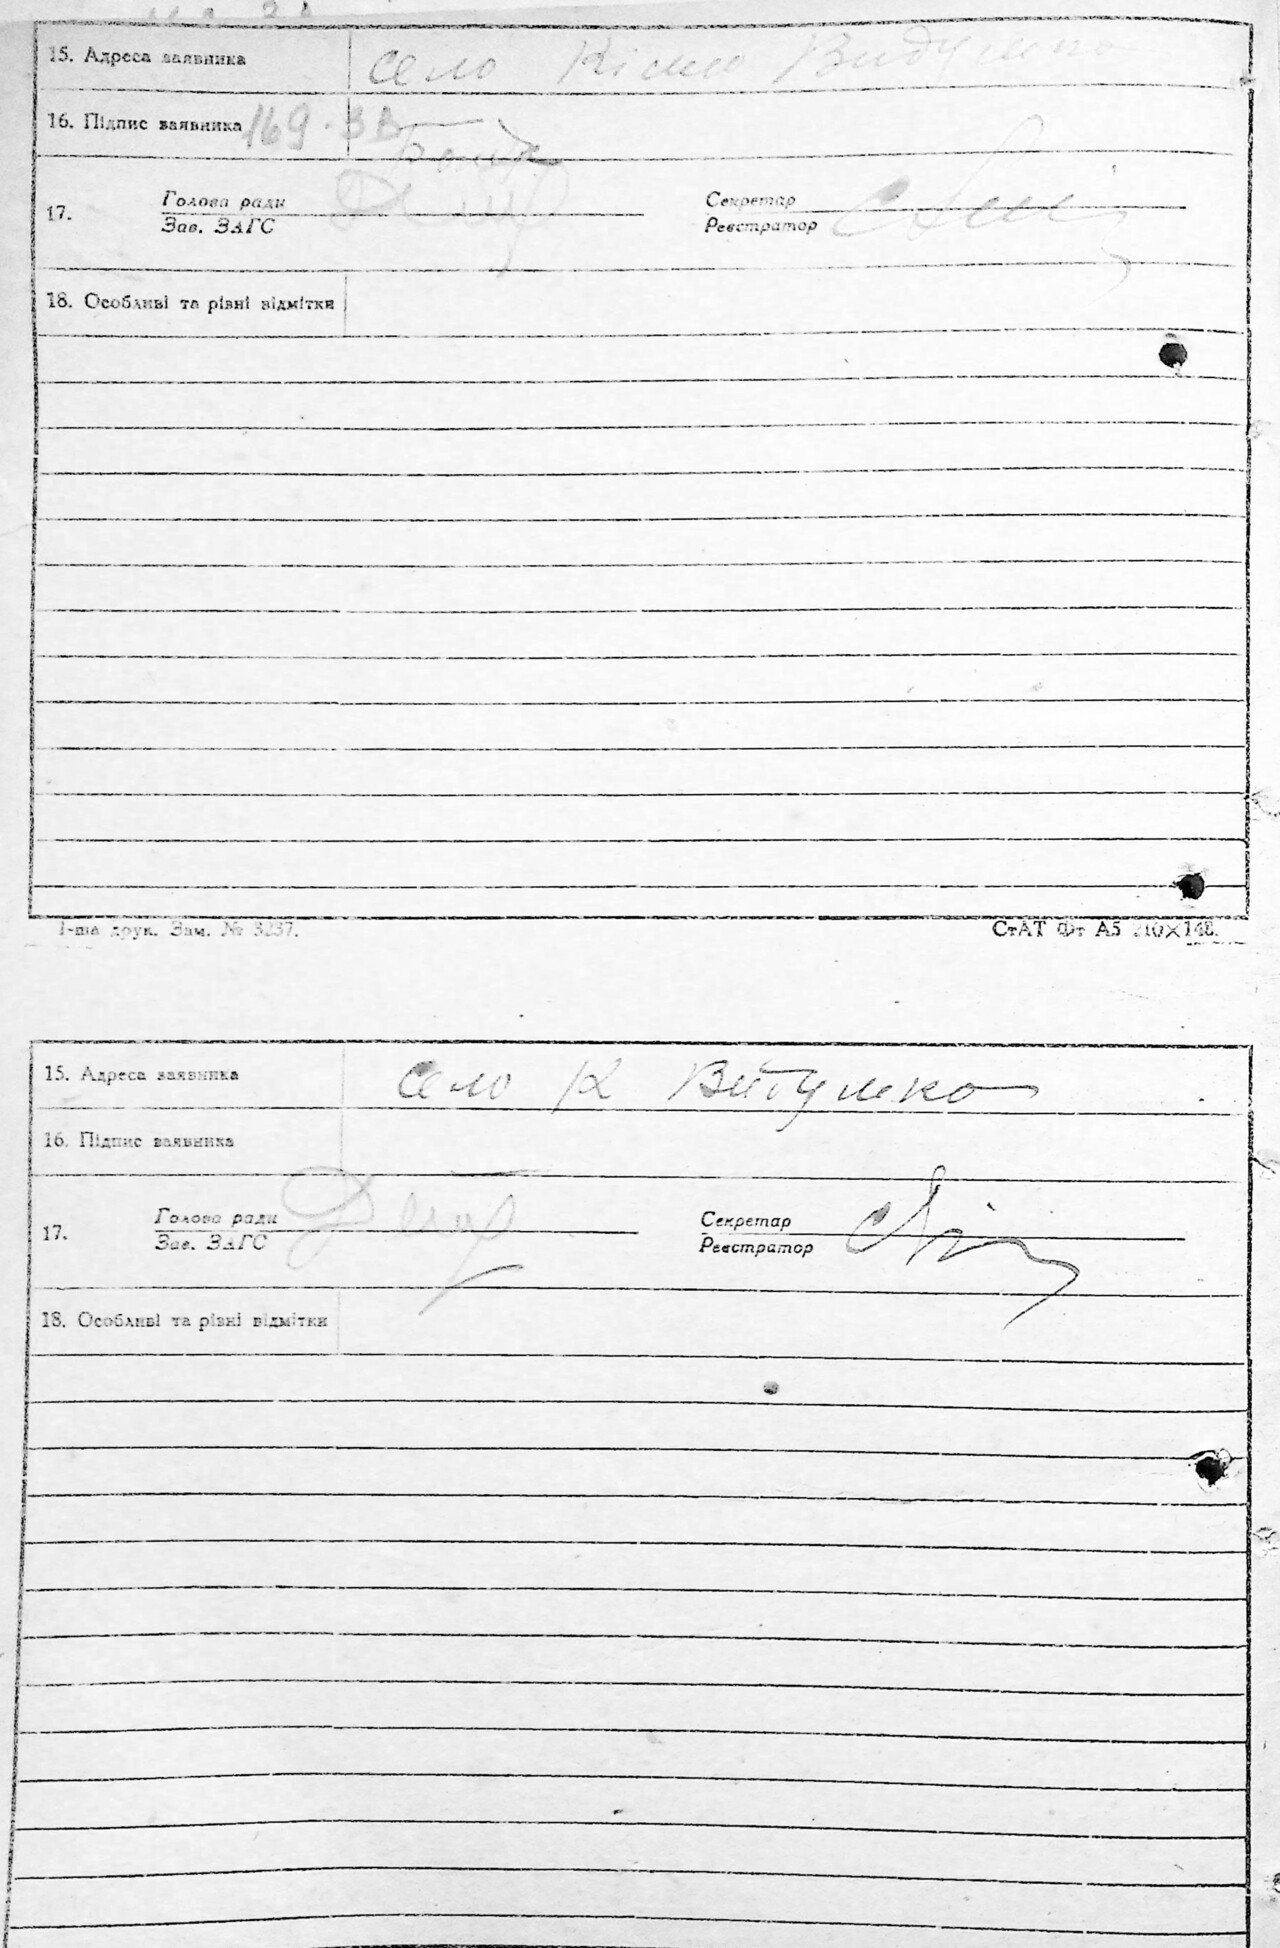 15. Адреса заявника село Кісто Видумка
16. Підпис заявника 169-ЗВ
Голова ради Секретар
17.
Зав. ЗАГС Реєстратор
18. Особливі та різні відмітки
1-ша друк. Зам. № 3237. СтАТ Фт А5 210×148.
15. Адреса заявника село К Видумка
16. Підпис заявника
Голова ради Секретар
17.
Зав. ЗАГС Реєстратор
18. Особливі та різні відмітки